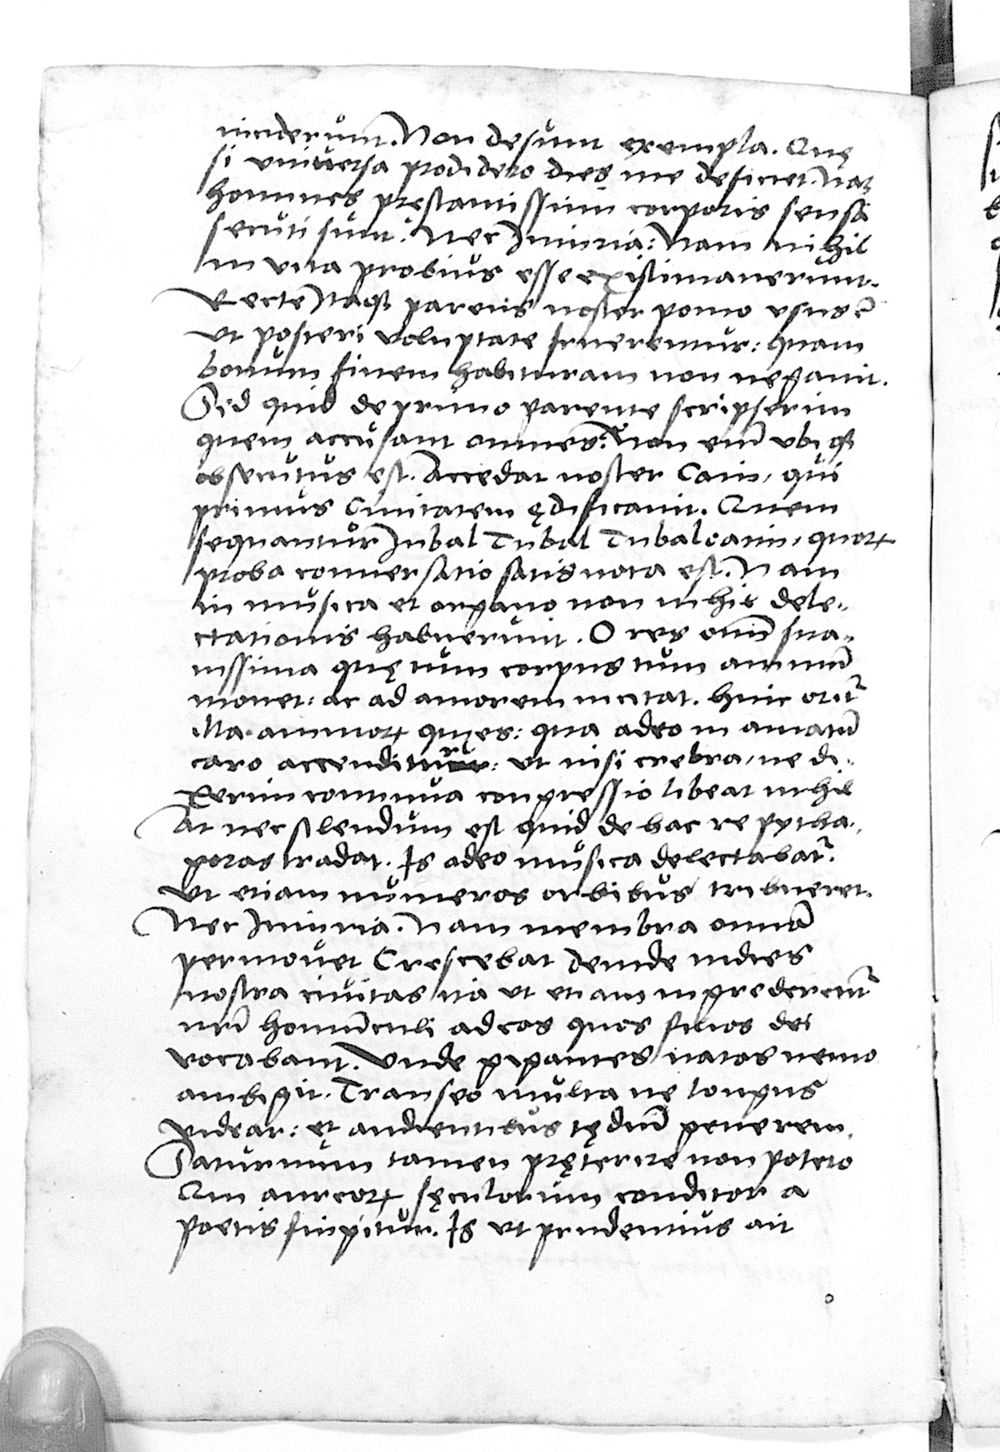 inciderunt. Non desunt exempla. Quę
si universa prodidero dies me deficiet. Nam
homines prestantissimi corporis sensa
secuti sunt. Nec Iniuria: Nam nihil
in vita probius esse existimaverunt.
Recte Itaqꝫ parens noster pomo usus ē
ut posteri voluptate fruerentur: quam
bonum finem habituram non negavit.
Sed quid de primo parente scripserim
quem accusant omnes: Non enī ubiqꝫ
obsecutus est. Accedat noster Cain, qui
primus Civitatem ędificavit. Quem
sequantur Iubal Tubal Tubalcain, quoꝝ
proba conversatio satis nota est. Nam
in musica et organo non nihil dele-
ctationis habuerunt. O res omī sua-
vissima quę tum corpus tum animū
movet: ac ad amorem incitat. hinc oritr̄
illa animoꝝ quies: qua adeo in amatū
caro accenditur: ut nisi crebra, ne di-
xerim continua congressio libeat nihil
At nec silendum est quid de hac re pytha-
goras tradat. Is adeo musica delectabatr̄.
ut etiam numeros orbibus tribueret.
Nec Iniuria. Nam membra omnia
permovet Crescebat deinde indies
nostra civitas ita ut etiam ingrederentr̄
nrī homūculi ad eas quos filios dei
vocabant. Unde gigantes natos nemo
ambigit. Transeo multa ne longus
videar: et audientibus tędiū generem.
Saturnum tamen pręterire non potero
Qui aureoꝝ sęculorum conditor a
poetis fingitur. Is ut prudentius ait